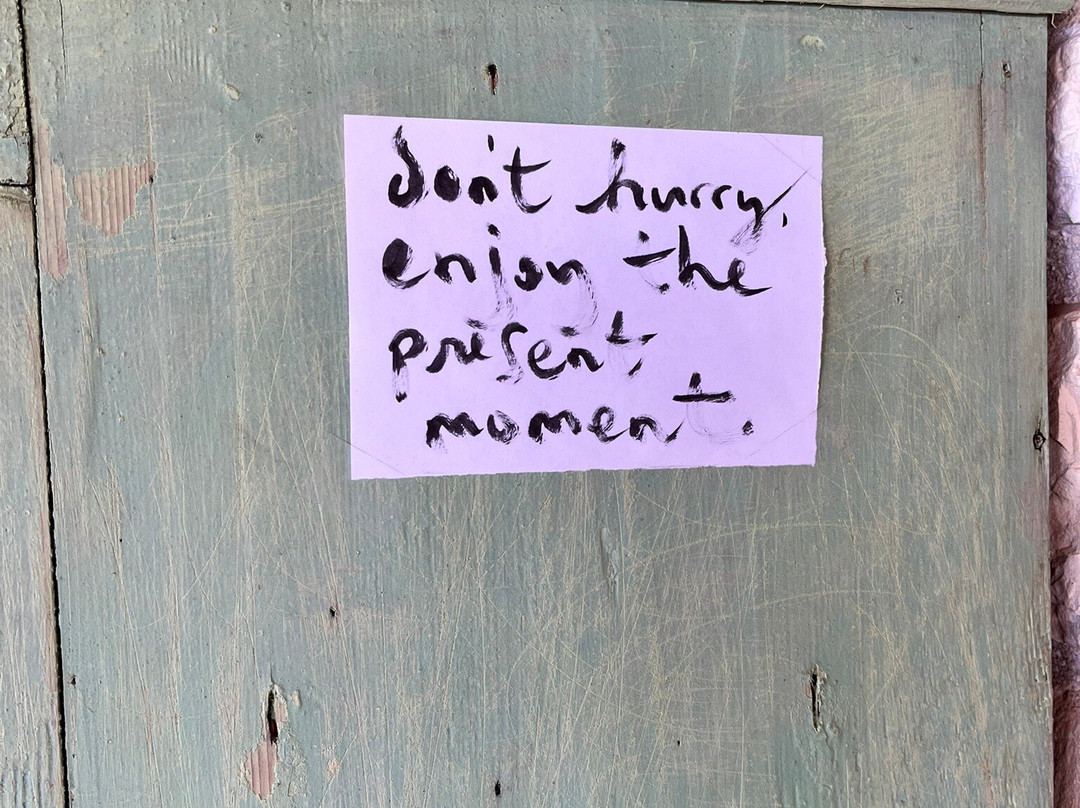 don't hurry,
enjoy the
present
moment.